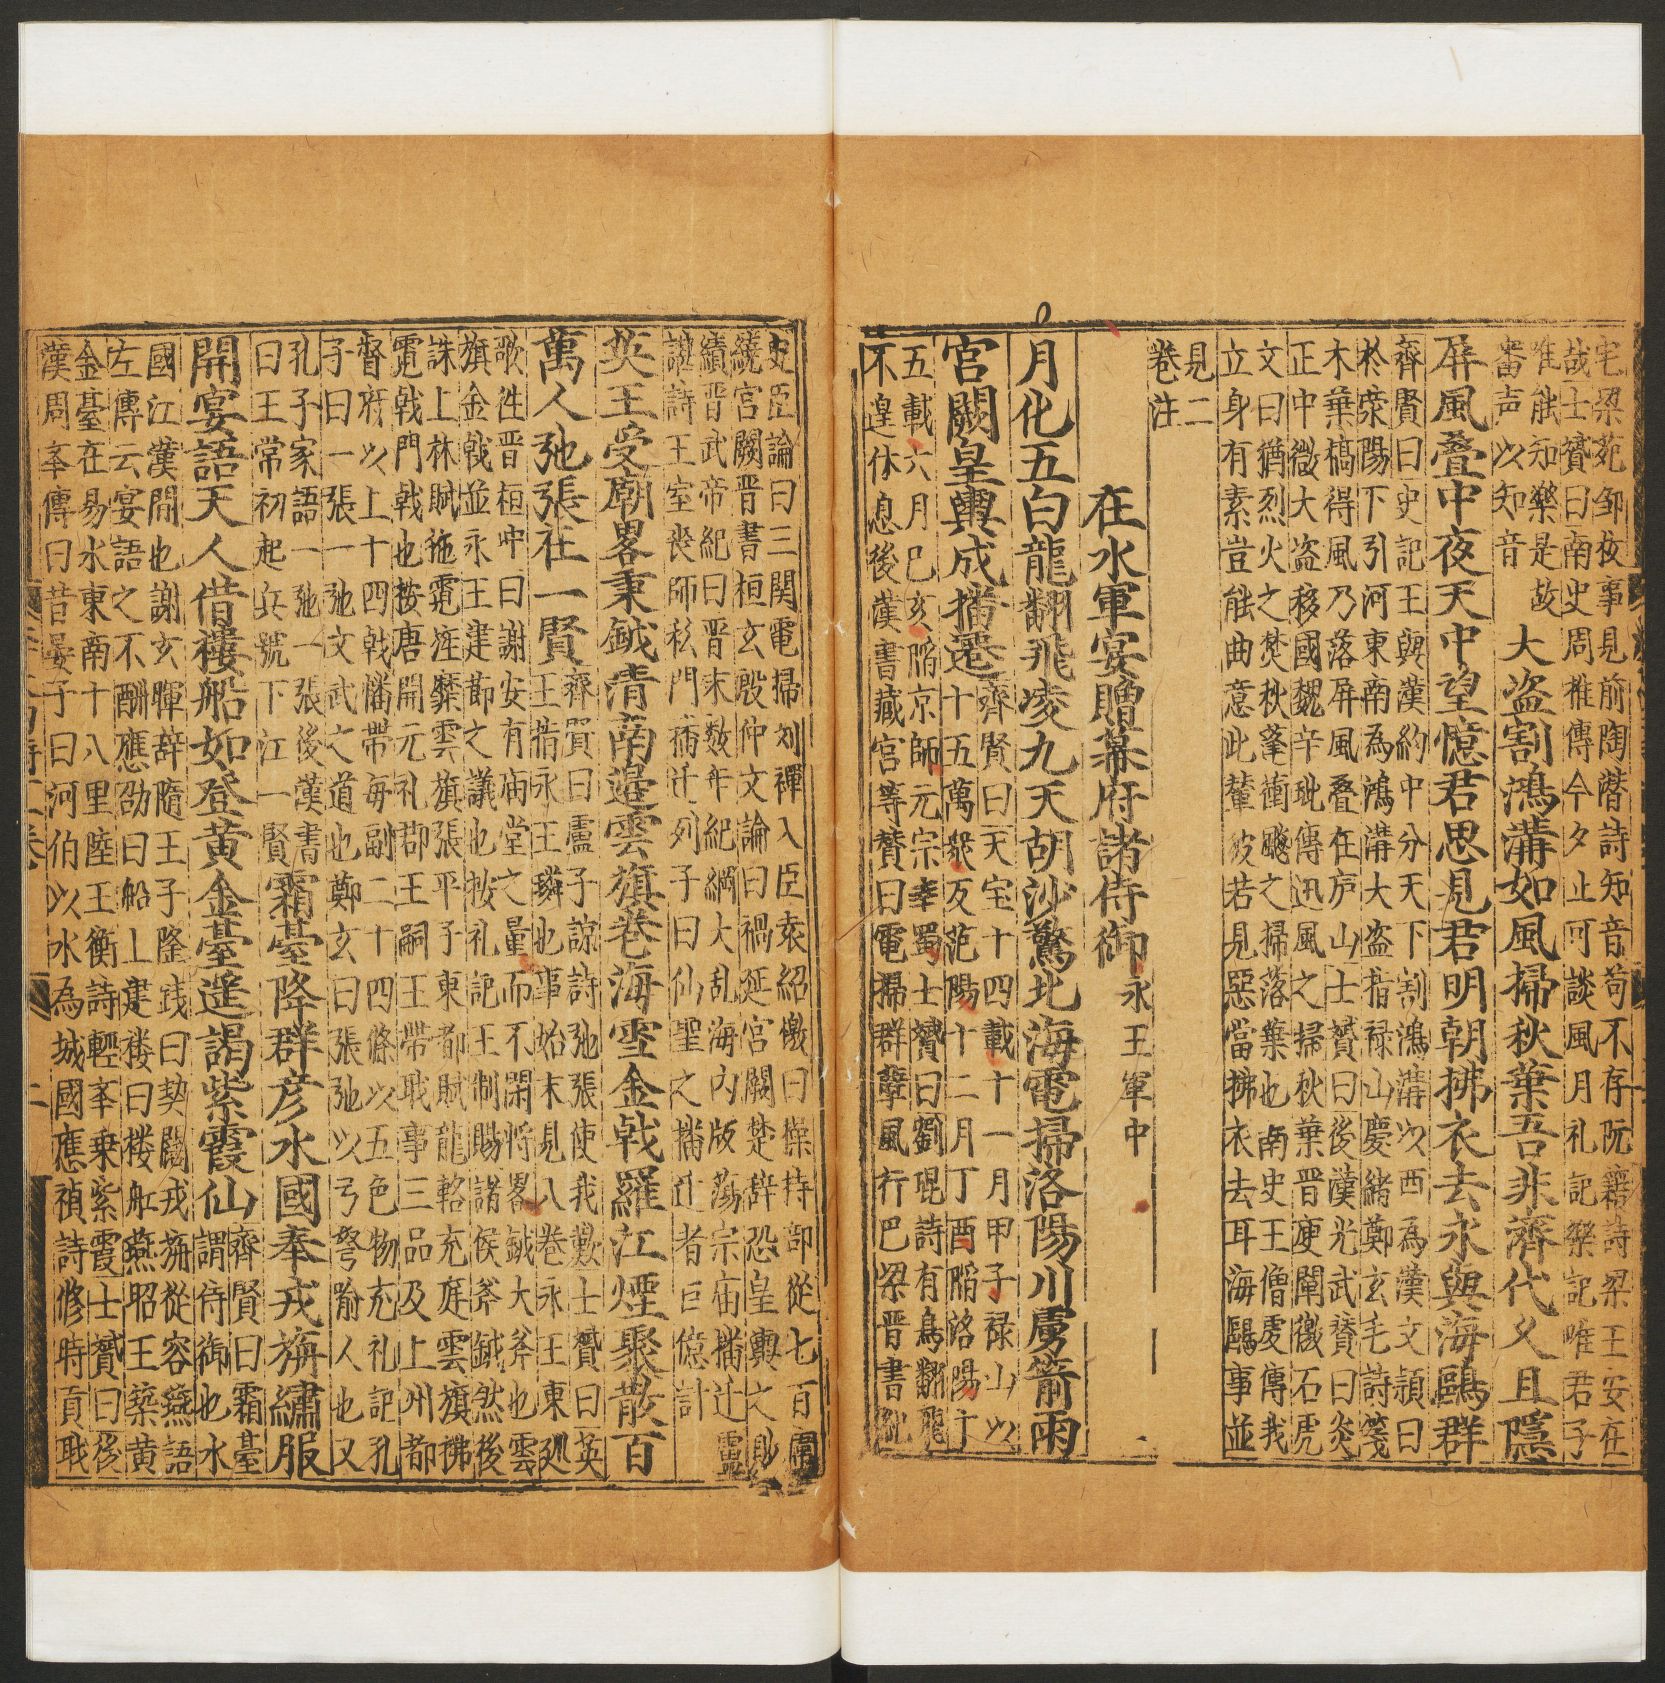 宅梁苑邹枚事見前陶潜詩知音苟不存阮籍詩梁王安在
哉士贇曰南史周推傳今夕止可談風月礼記樂記唯君子
唯能知樂是故
審声以知音
大盗割鴻溝如風掃秋葉吾非濟代人且隱
屏風叠中夜天中望憶君思見君明朝拂衣去永與海鷗群
齊賢曰史記王與漢約中分天下割鴻溝以西為漢文頴曰
於滎陽下引河東南為鴻溝大盗指禄山慶緒鄭玄毛詩箋
木葉槁得風乃落屏風叠在庐山士贇曰後漢光武賛曰炎
正中微大盗移國魏辛毗傳迅風之掃秋葉晋庾闡檄石虎
文曰猶烈火之焚秋蓬衝飈之掃落葉也南史王僧虔傳我
立身有素豈能曲意此輩彼若見惡當拂衣去耳海鷗事並
見二
卷注
在水軍宴贈幕府諸侍御永王軍中
月化五白龍翻飛凌九天胡沙驚北海電掃洛陽川虜箭雨
宮闕皇輿成播遷
齊賢曰天宝十四載十一月甲子禄山以
十五萬衆反范陽十二月丁酉陷洛陽十
五載六月已亥陷京師元宗幸蜀士贇曰劉琨詩有鳥翻飛
不遑休息後漢書藏宮等賛曰電掃群孽風行巴梁晋書
史臣論曰三関電掃刘禪入臣袁紹檄曰操持部從七百圍
繞宮闕晋書桓玄殷仲文論曰禍延宮闕楚辞恐皇輿之敗
績晋武帝紀曰晋末数年紀綱大乱海内版蕩宗庙播迁
詩王室丧師移門衛迁列子曰仙聖之播迁者巨億計
英王受廟畧秉鉞清南邉雲旗卷海雪金戟羅江煙聚散百
萬人弛張在一賢
齊賢曰盧子諒詩弛張使我歎士贇曰英
王指永王璘也事始末見八巻永王東廵
歌泩晋桓冲曰謝安有庙堂之量而不閑將畧鉞大斧也雲
旗金戟並永王建節之議也按礼記王制賜諸侯斧鉞然後
誅上林賦拖霓旌靡雲旗張平子東都賦龍輅充庭雲旗拂
霓戟門戟也按唐開元礼郡王嗣王帶職事三品及上州都
督府以上十四戟幡帶每副二十四條以五色物充礼記孔
子曰一張一弛文武之道也鄭玄曰張弛以弓弩喻人也又
孔子家語一弛一張後漢書
曰王常初起兵號下江一賢
霜臺降群彦水國奉戎旃繡服
開宴語天人借樓船如登黄金臺遥謁紫霞仙
齊賢曰霜臺
謂侍御也水
國江漢間也謝玄暉辞隋王子隆践曰契闊戎旃從容讌語
左傳云宴語之不酬應劭曰船上建楼曰楼舡燕昭王築黄
金臺在易水東南十八里陸士衡詩輕舉乗紫霞士贇曰後
漢周举傳曰昔晏子曰河伯以水為城國應禎詩修時貢職